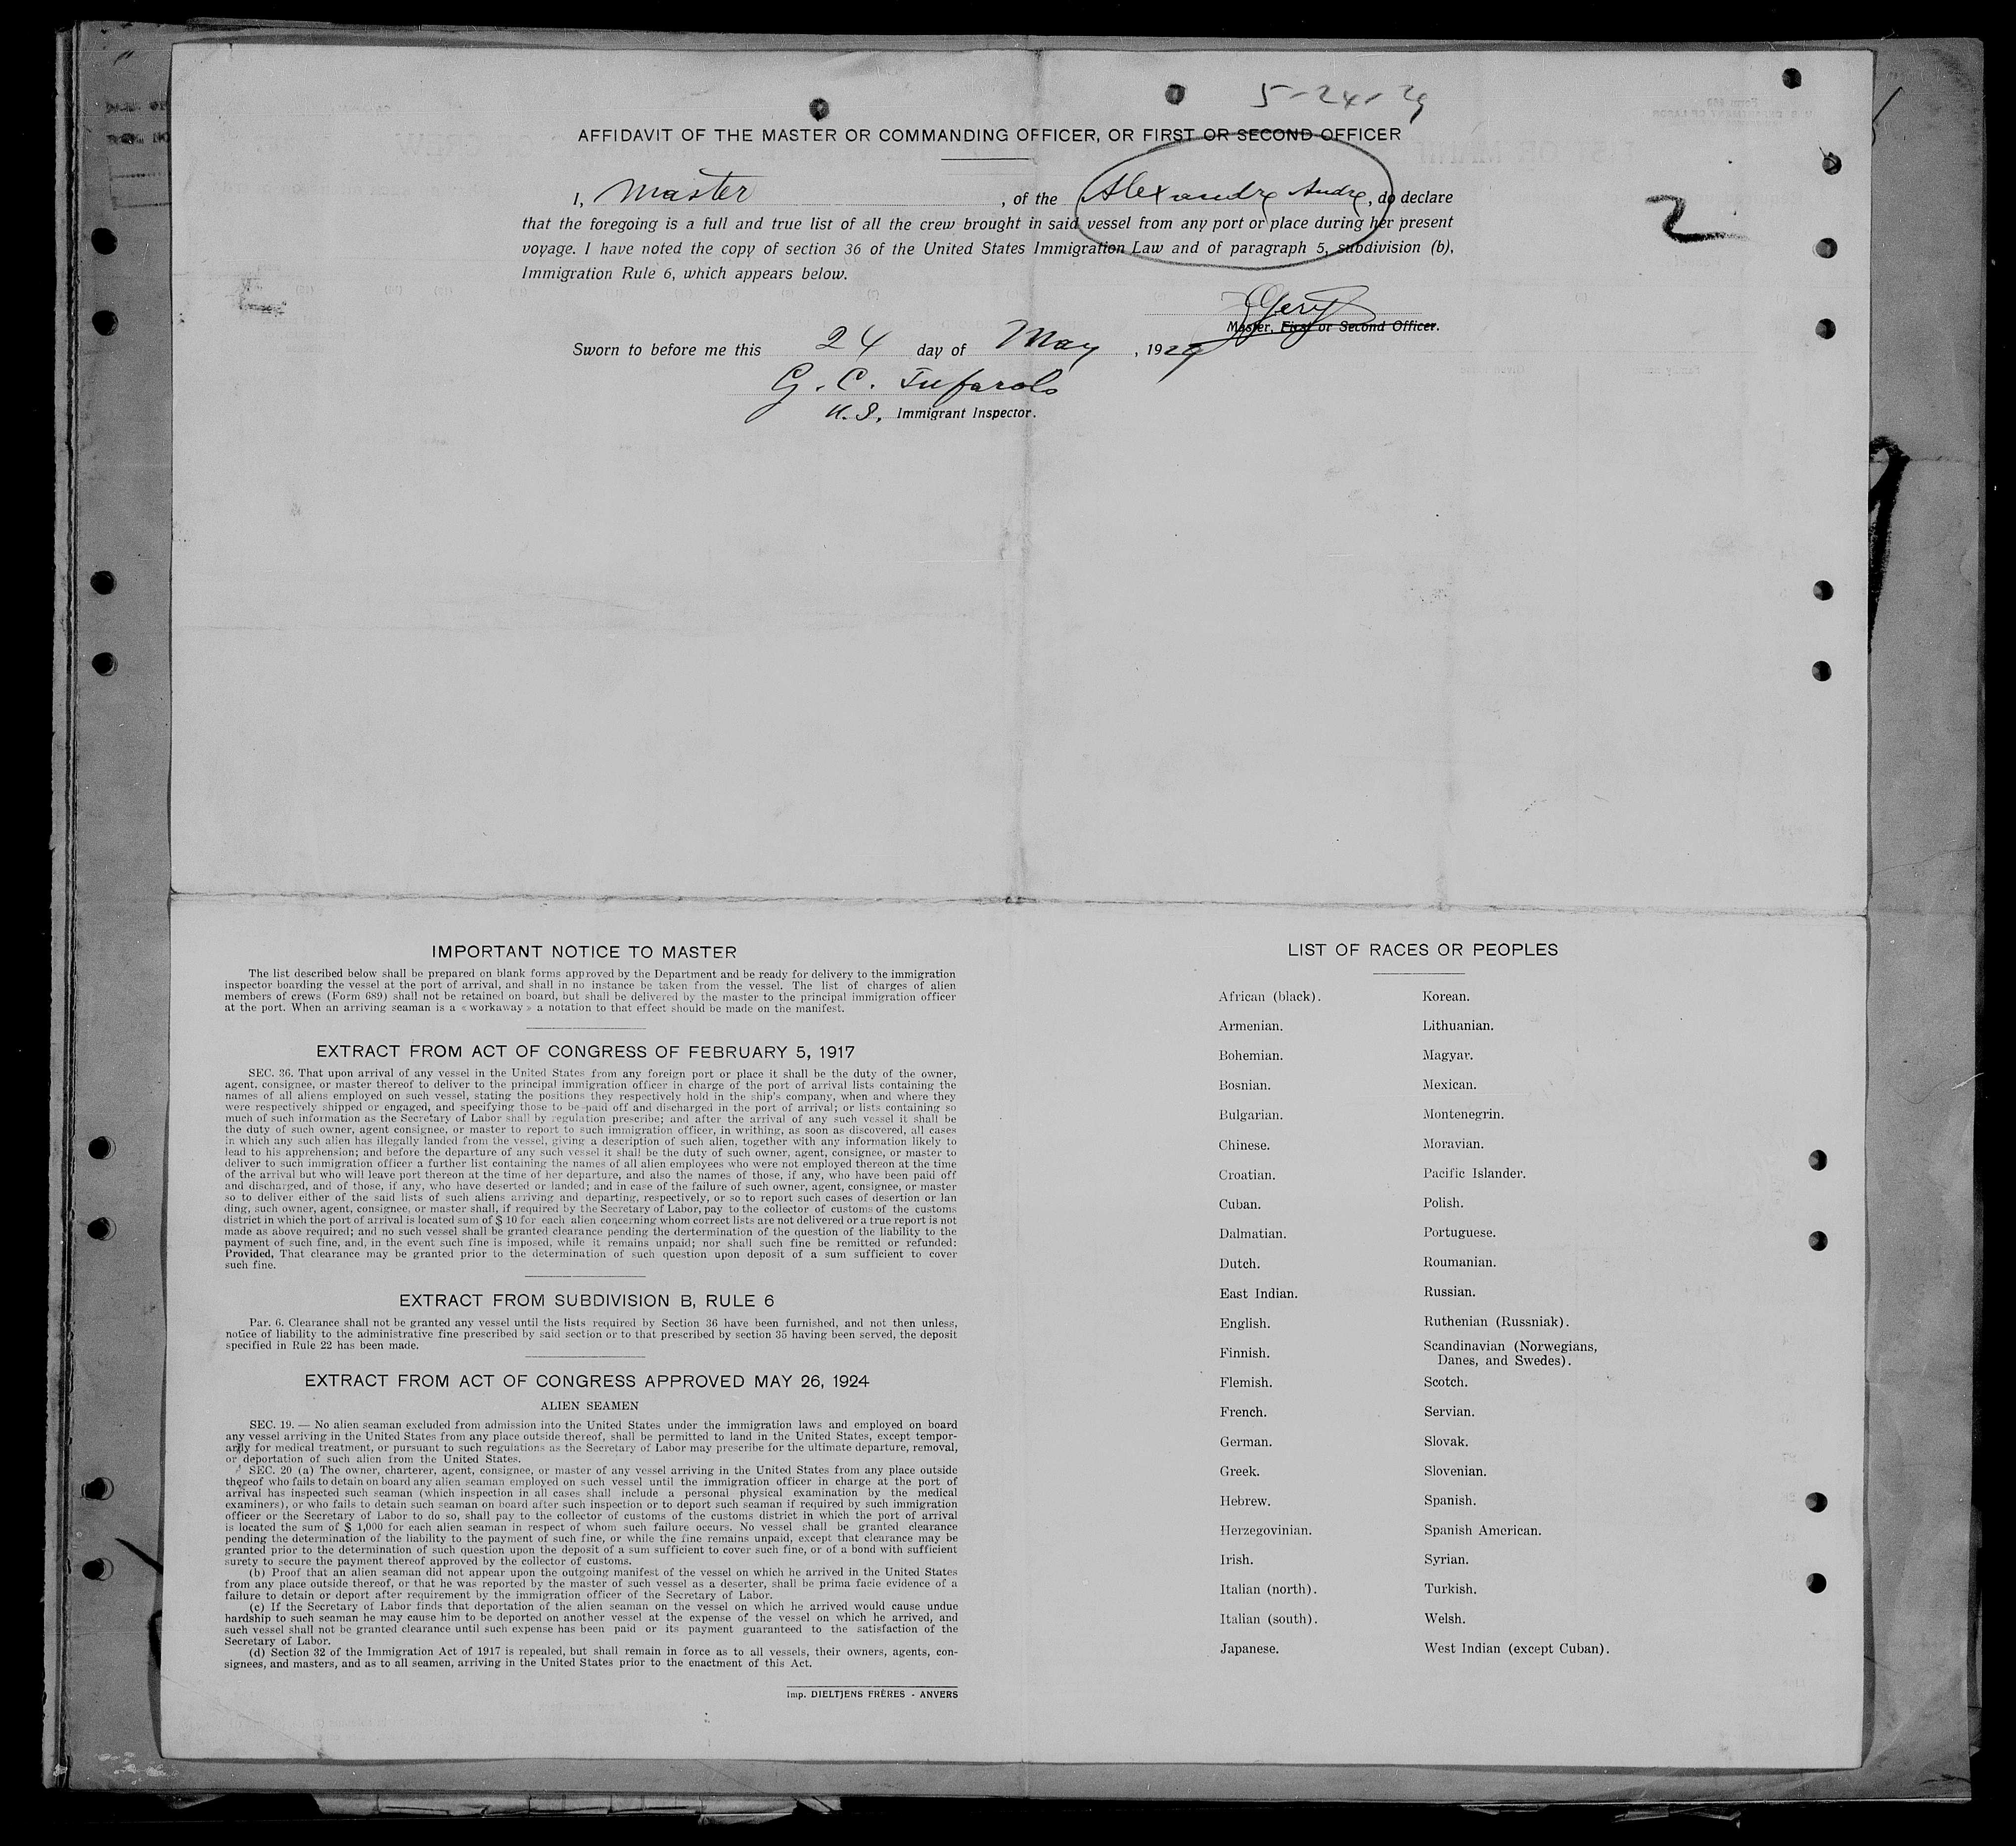 5-24-29
AFFIDAVIT OF THE MASTER OR COMMANDING OFFICER, OR FIRST OR SECOND OFFICER
I, Master , of the Alexandre Andre, do declare
that the foregoing is a full and true list of all the crew brought in said vessel from any port or place during her present
voyage. I have noted the copy of section 36 of the United States Immigration Law and of paragraph 5, subdivision (b),
Immigration Rule 6, which appears below.
2
Master, First or Second Officer.
Sworn to before me this 24 day of May , 1929
G. C. Tufarolo
U.S. Immigrant Inspector.
IMPORTANT NOTICE TO MASTER
The list described below shall be prepared on blank forms approved by the Department and be ready for delivery to the immigration
inspector boarding the vessel at the port of arrival, and shall in no instance be taken from the vessel. The list of charges of alien
members of crews (Form 689) shall not be retained on board, but shall be delivered by the master to the principal immigration officer
at the port. When an arriving seaman is a «workaway» a notation to that effect should be made on the manifest.
EXTRACT FROM ACT OF CONGRESS OF FEBRUARY 5, 1917
SEC. 36. That upon arrival of any vessel in the United States from any foreign port or place it shall be the duty of the owner,
agent, consignee, or master thereof to deliver to the principal immigration officer in charge of the port of arrival lists containing the
names of all aliens employed on such vessel, stating the positions they respectively hold in the ship's company, when and where they
were respectively shipped or engaged, and specifying those to be paid off and discharged in the port of arrival; or lists containing so
much of such information as the Secretary of Labor shall by regulation prescribe; and after the arrival of any such vessel it shall be
the duty of such owner, agent consignee, or master to report to such immigration officer, in writhing, as soon as discovered, all cases
in which any such alien has illegally landed from the vessel, giving a description of such alien, together with any information likely to
lead to his apprehension; and before the departure of any such vessel it shall be the duty of such owner, agent, consignee, or master to
deliver to such immigration officer a further list containing the names of all alien employees who were not employed thereon at the time
of the arrival but who will leave port thereon at the time of her departure, and also the names of those, if any, who have been paid off
and discharged, and of those, if any, who have deserted or landed; and in case of the failure of such owner, agent, consignee, or master
so to deliver either of the said lists of such aliens arriving and departing, respectively, or so to report such cases of desertion or lan
ding, such owner, agent, consignee, or master shall, if required by the Secretary of Labor, pay to the collector of customs of the customs
district in which the port of arrival is located sum of $ 10 for each alien concerning whom correct lists are not delivered or a true report is not
made as above required; and no such vessel shall be granted clearance pending the dertermination of the question of the liability to the
payment of such fine, and, in the event such fine is imposed, while it remains unpaid; nor shall such fine be remitted or refunded:
Provided, That clearance may be granted prior to the determination of such question upon deposit of a sum sufficient to cover
such fine.
EXTRACT FROM SUBDIVISION B, RULE 6
Par. 6. Clearance shall not be granted any vessel until the lists required by Section 36 have been furnished, and not then unless,
notice of liability to the administrative fine prescribed by said section or to that prescribed by section 35 having been served, the deposit
specified in Rule 22 has been made.
EXTRACT FROM ACT OF CONGRESS APPROVED MAY 26, 1924
ALIEN SEAMEN
SEC. 19. — No alien seaman excluded from admission into the United States under the immigration laws and employed on board
any vessel arriving in the United States from any place outside thereof, shall be permitted to land in the United States, except tempor-
arily for medical treatment, or pursuant to such regulations as the Secretary of Labor may prescribe for the ultimate departure, removal,
or deportation of such alien from the United States.
SEC. 20 (a) The owner, charterer, agent, consignee, or master of any vessel arriving in the United States from any place outside
thereof who fails to detain on board any alien seaman employed on such vessel until the immigration officer in charge at the port of
arrival has inspected such seaman (which inspection in all cases shall include a personal physical examination by the medical
examiners), or who fails to detain such seaman on board after such inspection or to deport such seaman if required by such immigration
officer or the Secretary of Labor to do so, shall pay to the collector of customs of the customs district in which the port of arrival
is located the sum of $ 1,000 for each alien seaman in respect of whom such failure occurs. No vessel shall be granted clearance
pending the determination of the liability to the payment of such fine, or while the fine remains unpaid, except that clearance may be
granted prior to the determination of such question upon the deposit of a sum sufficient to cover such fine, or of a bond with sufficient
surety to secure the payment thereof approved by the collector of customs.
(b) Proof that an alien seaman did not appear upon the outgoing manifest of the vessel on which he arrived in the United States
from any place outside thereof, or that he was reported by the master of such vessel as a deserter, shall be prima facie evidence of a
failure to detain or deport after requirement by the immigration officer of the Secretary of Labor.
(c) If the Secretary of Labor finds that deportation of the alien seaman on the vessel on which he arrived would cause undue
hardship to such seaman he may cause him to be deported on another vessel at the expense of the vessel on which he arrived, and
such vessel shall not be granted clearance until such expense has been paid or its payment guaranteed to the satisfaction of the
Secretary of Labor.
(d) Section 32 of the Immigration Act of 1917 is repealed, but shall remain in force as to all vessels, their owners, agents, con-
signees, and masters, and as to all seamen, arriving in the United States prior to the enactment of this Act.
Imp. DIELTJENS FRÈRES - ANVERS
LIST OF RACES OR PEOPLES
African (black). Korean.
Armenian. Lithuanian.
Bohemian. Magyar.
Bosnian. Mexican.
Bulgarian. Montenegrin.
Chinese. Moravian.
Croatian. Pacific Islander.
Cuban. Polish.
Dalmatian. Portuguese.
Dutch. Roumanian.
East Indian. Russian.
English. Ruthenian (Russniak).
Finnish. Scandinavian (Norwegians,
Danes, and Swedes).
Flemish. Scotch.
French. Servian.
German. Slovak.
Greek. Slovenian.
Hebrew. Spanish.
Herzegovinian. Spanish American.
Irish. Syrian.
Italian (north). Turkish.
Italian (south). Welsh.
Japanese. West Indian (except Cuban).